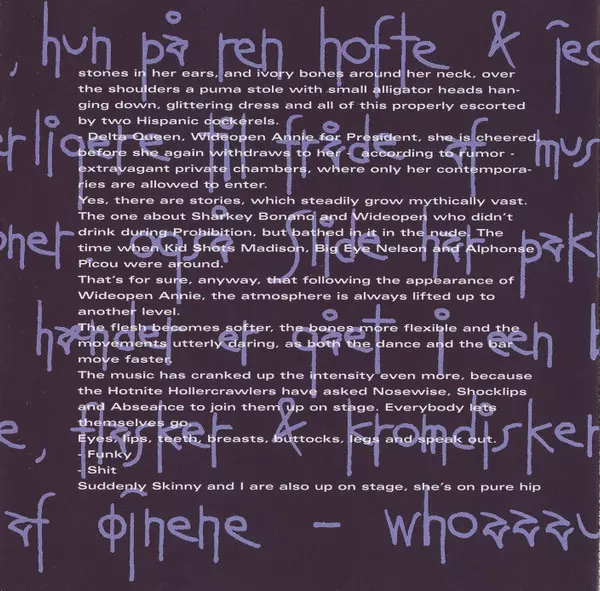 , hun på ren hofte & jeg
stones in her ears, and ivory bones around her neck, over
the shoulders a puma stole with small alligator heads han-
ging down, glittering dress and all of this properly escorted
by two Hispanic cockerels.
- Delta Queen, Wideopen Annie for President, she is cheered,
before she again withdraws to her - according to rumor -
extravagant private chambers, where only her contempora-
ries are allowed to enter.
Yes, there are stories, which steadily grow mythically vast.
The one about Sharkey Bonano and Wideopen, who didn't
drink during Prohibition, but bathed in it in the nude. The
time when Kid Shots Madison, Big Eye Nelson and Alphonse
Picou were around.
That's for sure, anyway, that following the appearance of
Wideopen Annie, the atmosphere is always lifted up to
another level.
The flesh becomes softer, the bones more flexible and the
movements utterly daring, as both the dance and the bar
move faster.
The music has cranked up the intensity even more, because
the Hotnite Hollercrawlers have asked Nosewise, Shocklips
and Abseance to join them up on stage. Everybody lets
themselves go.
Eyes, lips, teeth, breasts, buttocks, legs and speak out.
- Funky
- Shit
Suddenly Skinny and I are also up on stage, she's on pure hip
erligere til fråde af mus
oner, også Slide har pak
hænder er gået i een b
e, flasker & kromdisker
af øjnene – whoaaau